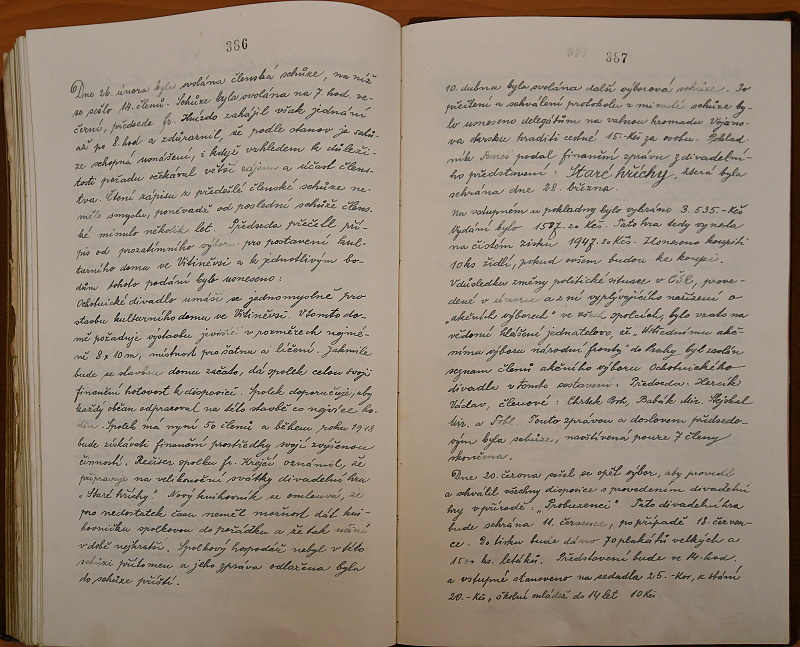 386
Dne 26. února byla svolána členská schůze, na níž
se sešlo 14. členů. Schůze byla svolána na 7 hod ve-
černí, předseda fr. Hnízdo zahájil však jednání
až po 8. hod a zdůraznil, že podle stanov je schů-
ze schopná usnášení, i když vzhledem k důleži-
tosti pořadu očekával větší zájem a účast člens-
tva. Čtení zápisu z předešlé členské schůze ne-
mělo smyslu, poněvadž od poslední schůze člens-
ké minulo několik let. Předseda přečetl pří-
pis od prozatímního výboru pro postavení kul-
turního domu ve Vitiněvsi a k jednotlivým bo-
dům tohoto podání bylo usneseno:
Ochotnické divadlo usnáší se jednomyslně pro
stavbu kulturního domu ve Vitiněvsi. V tomto do-
mě požaduje výstavbu jeviště v rozměrech nejmé-
ně 8 x 10 m, místnost pro šatnu a líčení. Jakmile
bude se stavbou domu začato, dá spolek celou svoji
finanční hotovost k disposici. Spolek doporučuje, aby
každý občan odpracoval na této stavbě co nejvíce ho-
din. Spolek má nyní 50 členů a během roku 1948
bude získávati finanční prostředky svojí zvýšenou
činností. Režiser spolku fr. Krejčí oznámil, že
připravuje na velikonoční svátky divadelní hru
„Staré hříchy." Nový knihovník se omlouvá, že
pro nedostatek času neměl možnost dát kni-
hovničku spolkovou do pořádku a že tak učiní
v době nejkratší. Spolkový hospodář nebyl v této
schůzi přítomen a jeho zpráva odložena byla
do schůze příští.
387
10. dubna byla svolána další výborová schůze. Po
přečtení a schválení protokolu z minulé schůze by-
lo usneseno delegátům na valnou hromadu Vojano-
va okrsku hraditi cestné 15.-Kčs za osobu. Poklad-
ník podal finanční zprávu z divadelní-
ho představení: Staré hříchy, která byla
sehrána dne 28. března.
Na vstupném u pokladny bylo vybráno 3.535.-Kčs
Vydání bylo 1587.20 Kčs. Tato hra tedy vynesla
na čistém zisku 1947.80 Kčs. Usneseno koupiti
10 ks židlí, pokud ovšem budou ke koupi.
V důsledku změny politické situace v ČSR, prove-
dené v únoru a z ní vyplývajícího nařízení o
„akčních výborech" ve všech spolcích, bylo vzato na
vědomí hlášení jednatelovo, že „Ústřednímu akč-
nímu výboru národní fronty" do Prahy byl zaslán
seznam členů akčního výboru Ochotnického
divadla v tomto sestavení: Předseda: Horák
Václav, členové: Chrtek Boh., Babák Mir. Nejskal
Mir. a Fohl. Touto zprávou a doslovem předsedo-
vým byla schůze, navštívená pouze 7 členy
skončena.
Dne 20. června sešel se opět výbor, aby provedl
a schválil všechny disposice s provedením divadelní
hry v přírodě: „Probuzenci". Tato divadelní hra
bude sehrána 11. července, po případě 18. červen-
ce. Do tisku bude dáno 70 plakátů velkých a
1500 ks. letáků. Představení bude ve 14. hod.
a vstupné stanoveno na sedadla 25.-Kčs, k stání
20.-Kčs, školní mládež do 14 let 10 Kčs.